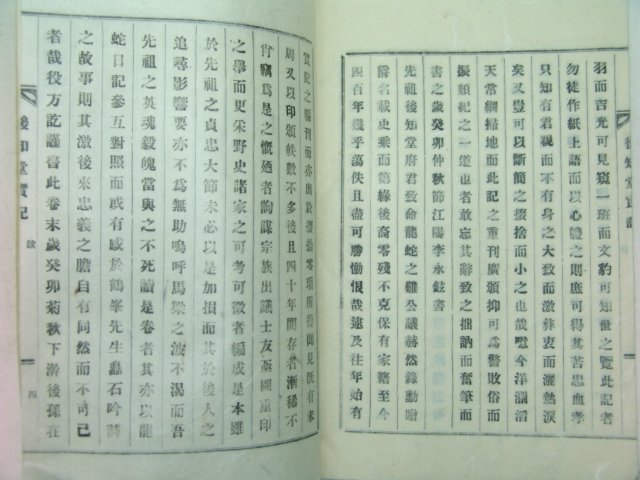 羽而吉光可見窺一班而文豹可知世之覽此記者
勿徒作紙上語而以心體之則庶可得其苦忠血孝
只知有君親而不有身之大致而激彝衷而灑熱淚
矣又豈可以斷簡之掇拾而小之也哉噫今洋瀾滔
天常綱掃地而此記之重刊廣頒抑可爲警敗俗而
振頹紀之一道也者敢忘其辭致之拙訥而奮筆而
書之歲癸卯仲秋節江陽李永鉉書
先祖後知堂府君致命龍蛇之難公議赫然錄勳贈
爵名載史乘而第緣後裔零殘不克保有家籍至今
四百年幾乎蕩佚且盡可勝慟恨哉逮及往年始有
後知堂實記
實記之編刊而亦出於掇拾零瑣所得聞見旣有未
周又以印頒帙數不多後且四十年間存者漸稀不
肖竊爲是之慨迺者詢謀宗族出議士友亟圖重印
之擧而更采野史諸家之可考可徵者編成是本雖
於先祖之貞忠大節未必以是加損而其於後人之
追尋影響要亦不爲無助嗚呼馬梁之波不渴而吾
先祖之英魂毅魄當與之不死讀是卷者其亦以龍
蛇日記參互對照而或有感於鶴峯先生矗石吟詩
之故事則其激後來忠義之膽自有同然而不可已
者哉役方訖謹書此卷末歲癸卯菊秋下澣後孫在
後知堂實記 跋 四